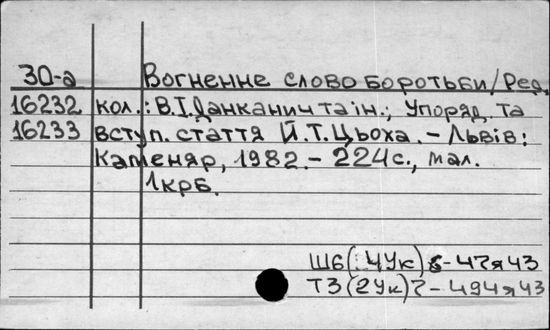 30-а Вогненне слово боротьби/Ред.
16232 кол.: В.І.Данканич та ін.; Упоряд. та
16233 вступ. стаття Й.Т.Цьоха. – Львів:
Каменяр, 1982. – 224с., мал.
1крб.
Ш6(4Ук) – 47я43
Т3(2Ук)7 – 494я43